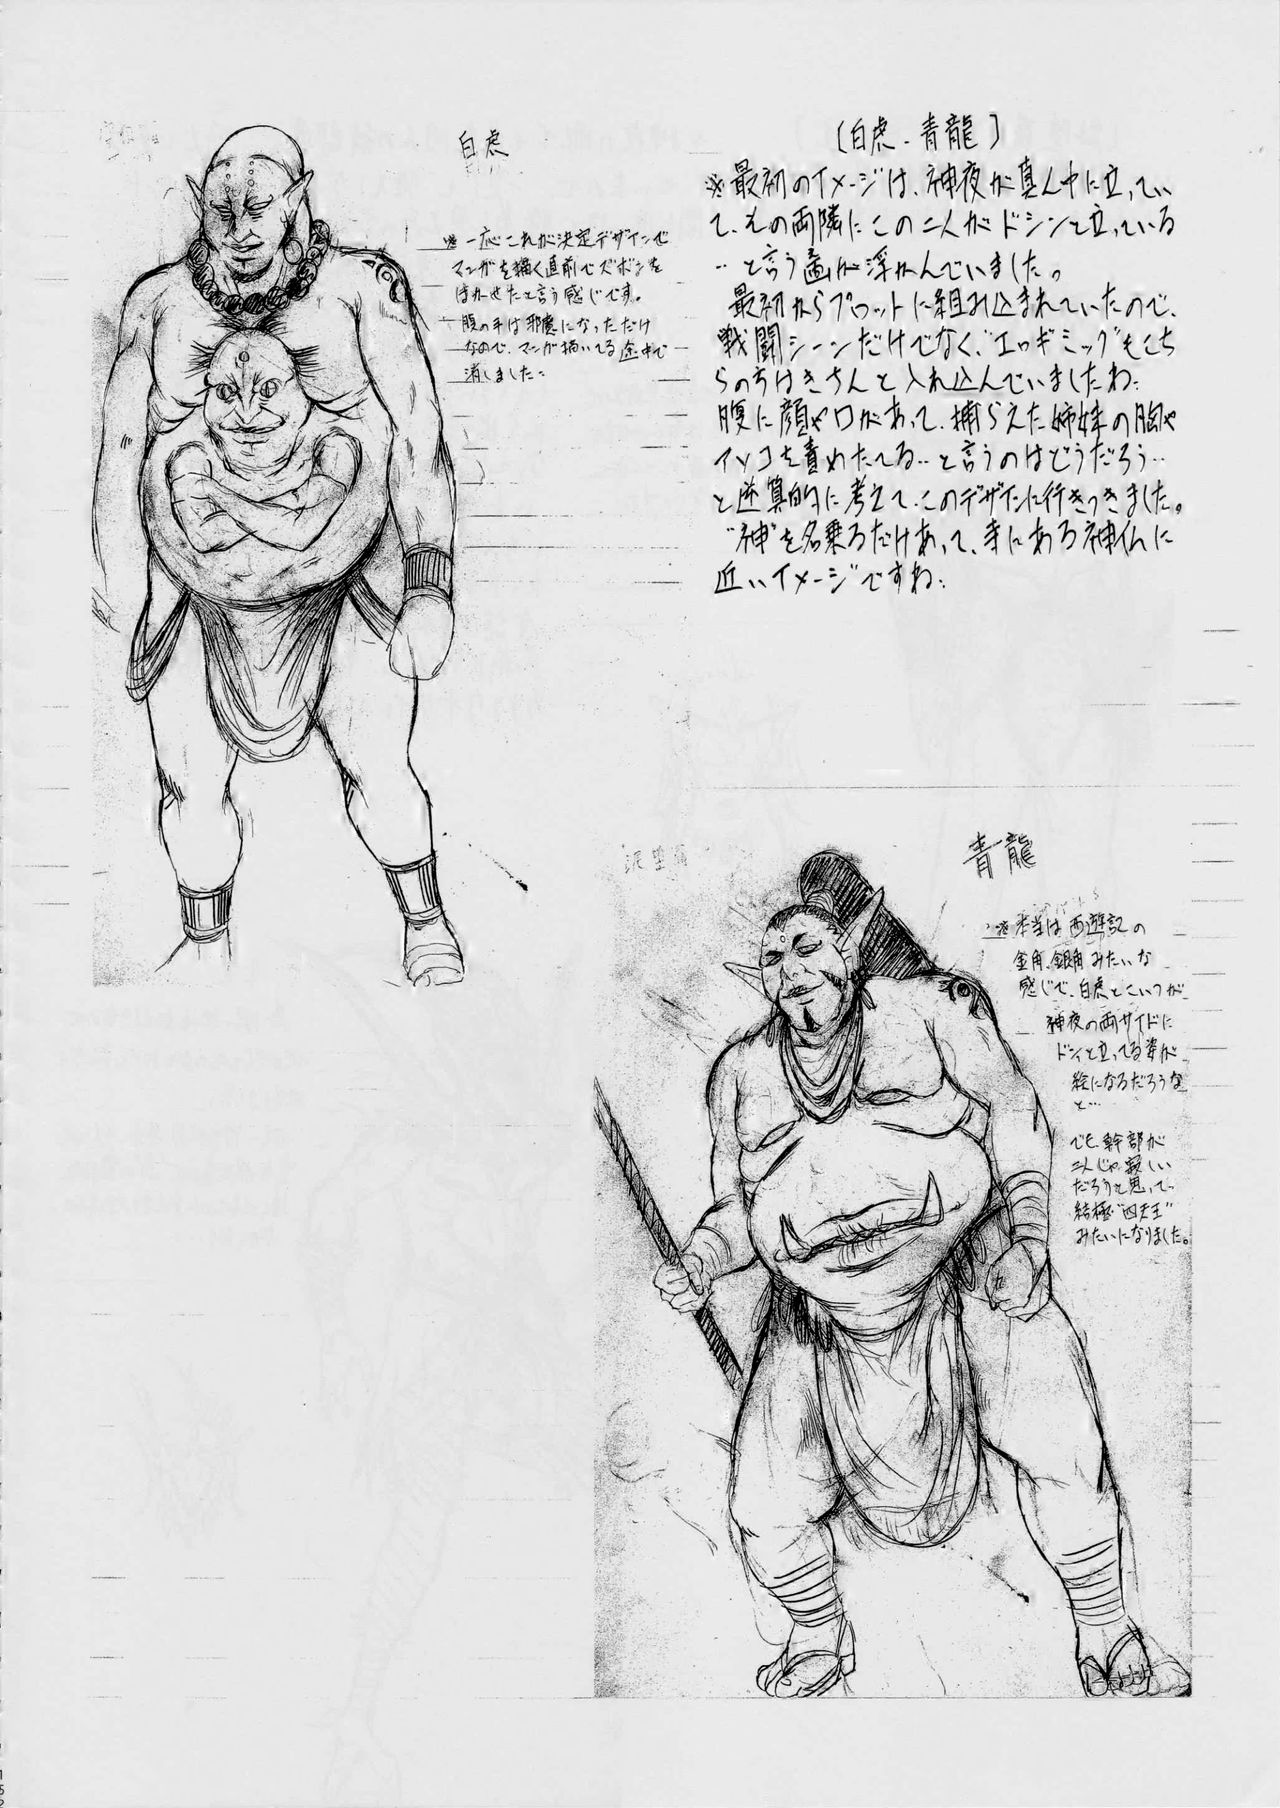 白虎
※一応これが決定デザインで
マンガを描く直前でズボンを
はかせたと言う感じです。
腹の手は邪魔になっただけ
なので、マンガ描いてる途中で
消しました…
〔白虎・青龍〕
※最初のイメージは、神夜が真ん中に立ってい
て、その両隣にこの二人がドシンと立っている
…と言う画が浮かんでいました。
最初からプロットに組み込まれていたので、
戦闘シーンだけでなく、"エロギミック"もこち
らの方はきちんと入れ込んでいましたね…
腹に顔や口があって、捕らえた姉妹の胸や
アソコを責めたてる…と言うのはどうだろう…
と逆算的に考えて、このデザインに行きつきました。
"神"を名乗るだけあって、寺にある神仏に
近いイメージですね…
青龍
※本当は西遊記の
金角、銀角みたいな
感じで、白虎とこいつが
神夜の両サイドに
ドンと立ってる姿が
絵になるだろうな
と…
でも、幹部が
二人じゃ寂しい
だろうと思って…
結極"四天王"
みたいになりました。
152